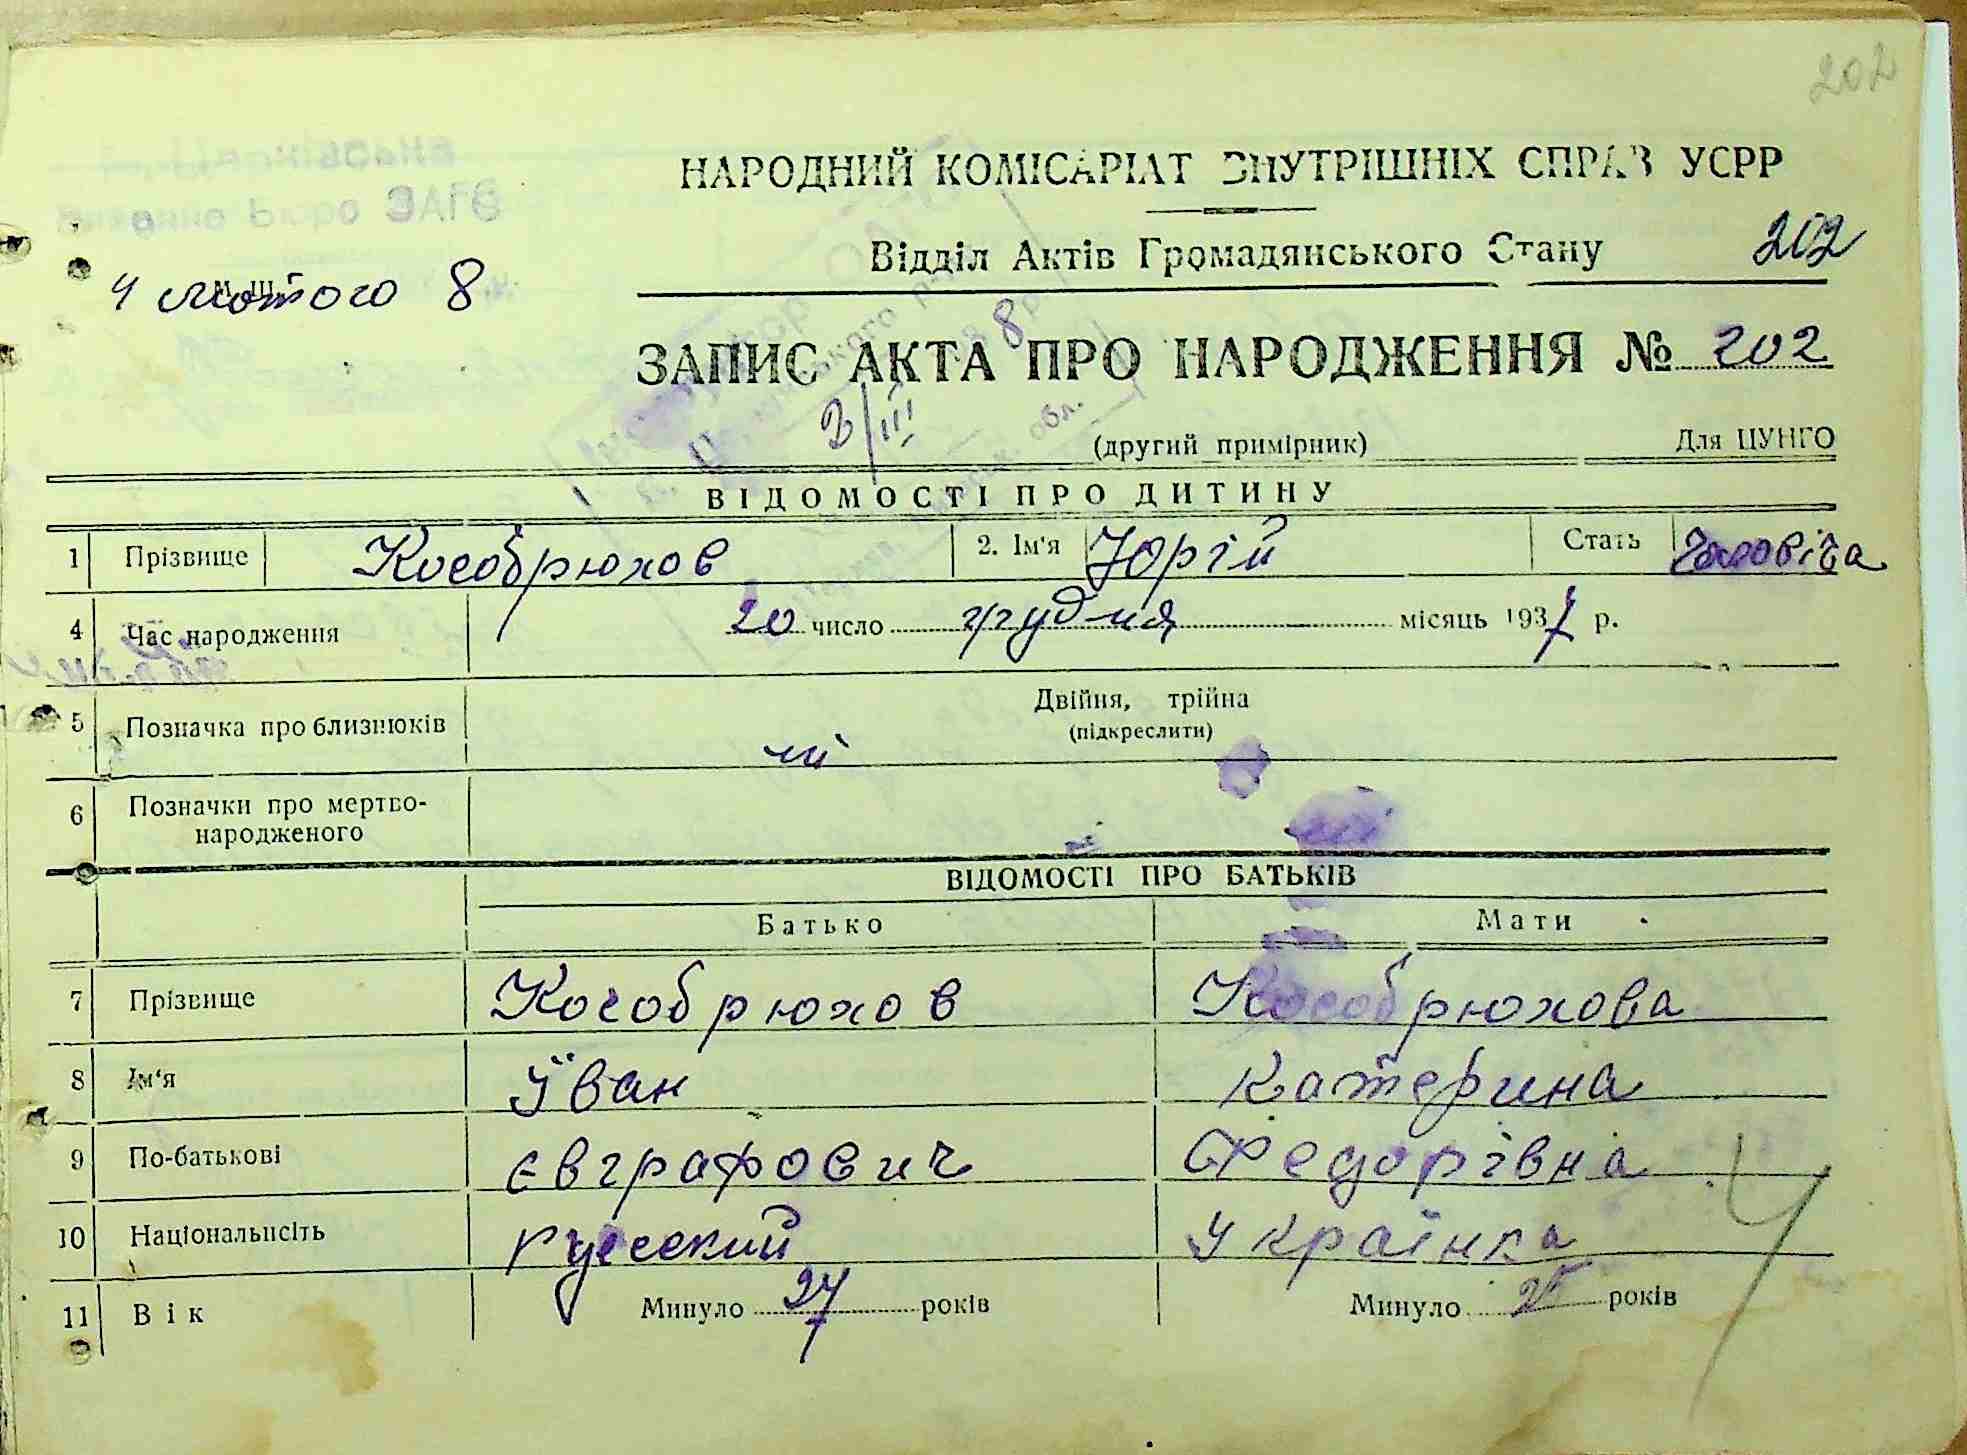 202
НАРОДНИЙ КОМІСАРІАТ ВНУТРІШНІХ СПРАВ УСРР
Відділ Актів Громадянського Стану 202
4 лютого 8
ЗАПИС АКТА ПРО НАРОДЖЕННЯ № 202
2/III
(другий примірник) Для ЦУНГО
ВІДОМОСТІ ПРО ДИТИНУ
1 Прізвище Кособрюхов 2. Ім'я Юрій Стать Чоловіча
4 Час народження 20 число грудня місяць 1937 р.
5 Позначка про близнюків Двійня, трійна
(підкреслити)
ні
6 Позначки про мертво-
народженого ні
ВІДОМОСТІ ПРО БАТЬКІВ
Батько Мати
7 Прізвище Кособрюхов Кособрюхова
8 Ім'я Їван Катерина
9 По-батькові Євграфович Федорівна
10 Національність русский Українка
11 Вік Минуло 27 років Минуло 25 років